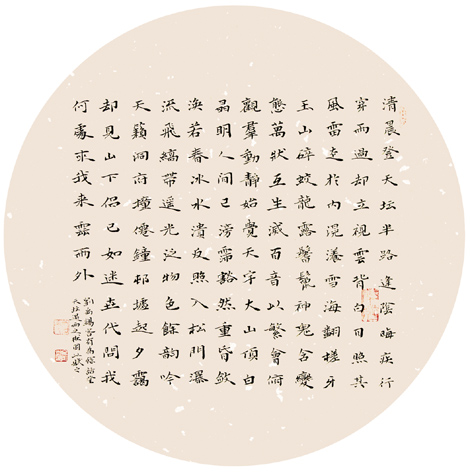 清晨登天坛半路逢陰晦疾行
穿雨過却立視雲背白日照其
風雷走於内滉瀁雪海翻槎牙
玉山碎蛟龍露鬐鬣神鬼含變
態萬狀互生滅百音以繁會俯
觀羣動静始覺天宇大山頂自
晶明人間已滂霈豁然重昏斂
渙若春冰水潰反照入松門瀑
流飛縞帶遥光泛物色餘韻吟
天籟洞府撞僊鐘邨墟起夕靄
却見山下侣已如迷世代問我
何處來我來雲雨外
劉禹錫客有為餘話登
天壇遇雨之狀因以賦之